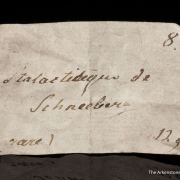 8.
Stalactitique de
Schneeberg
rare)
The Arkenstone